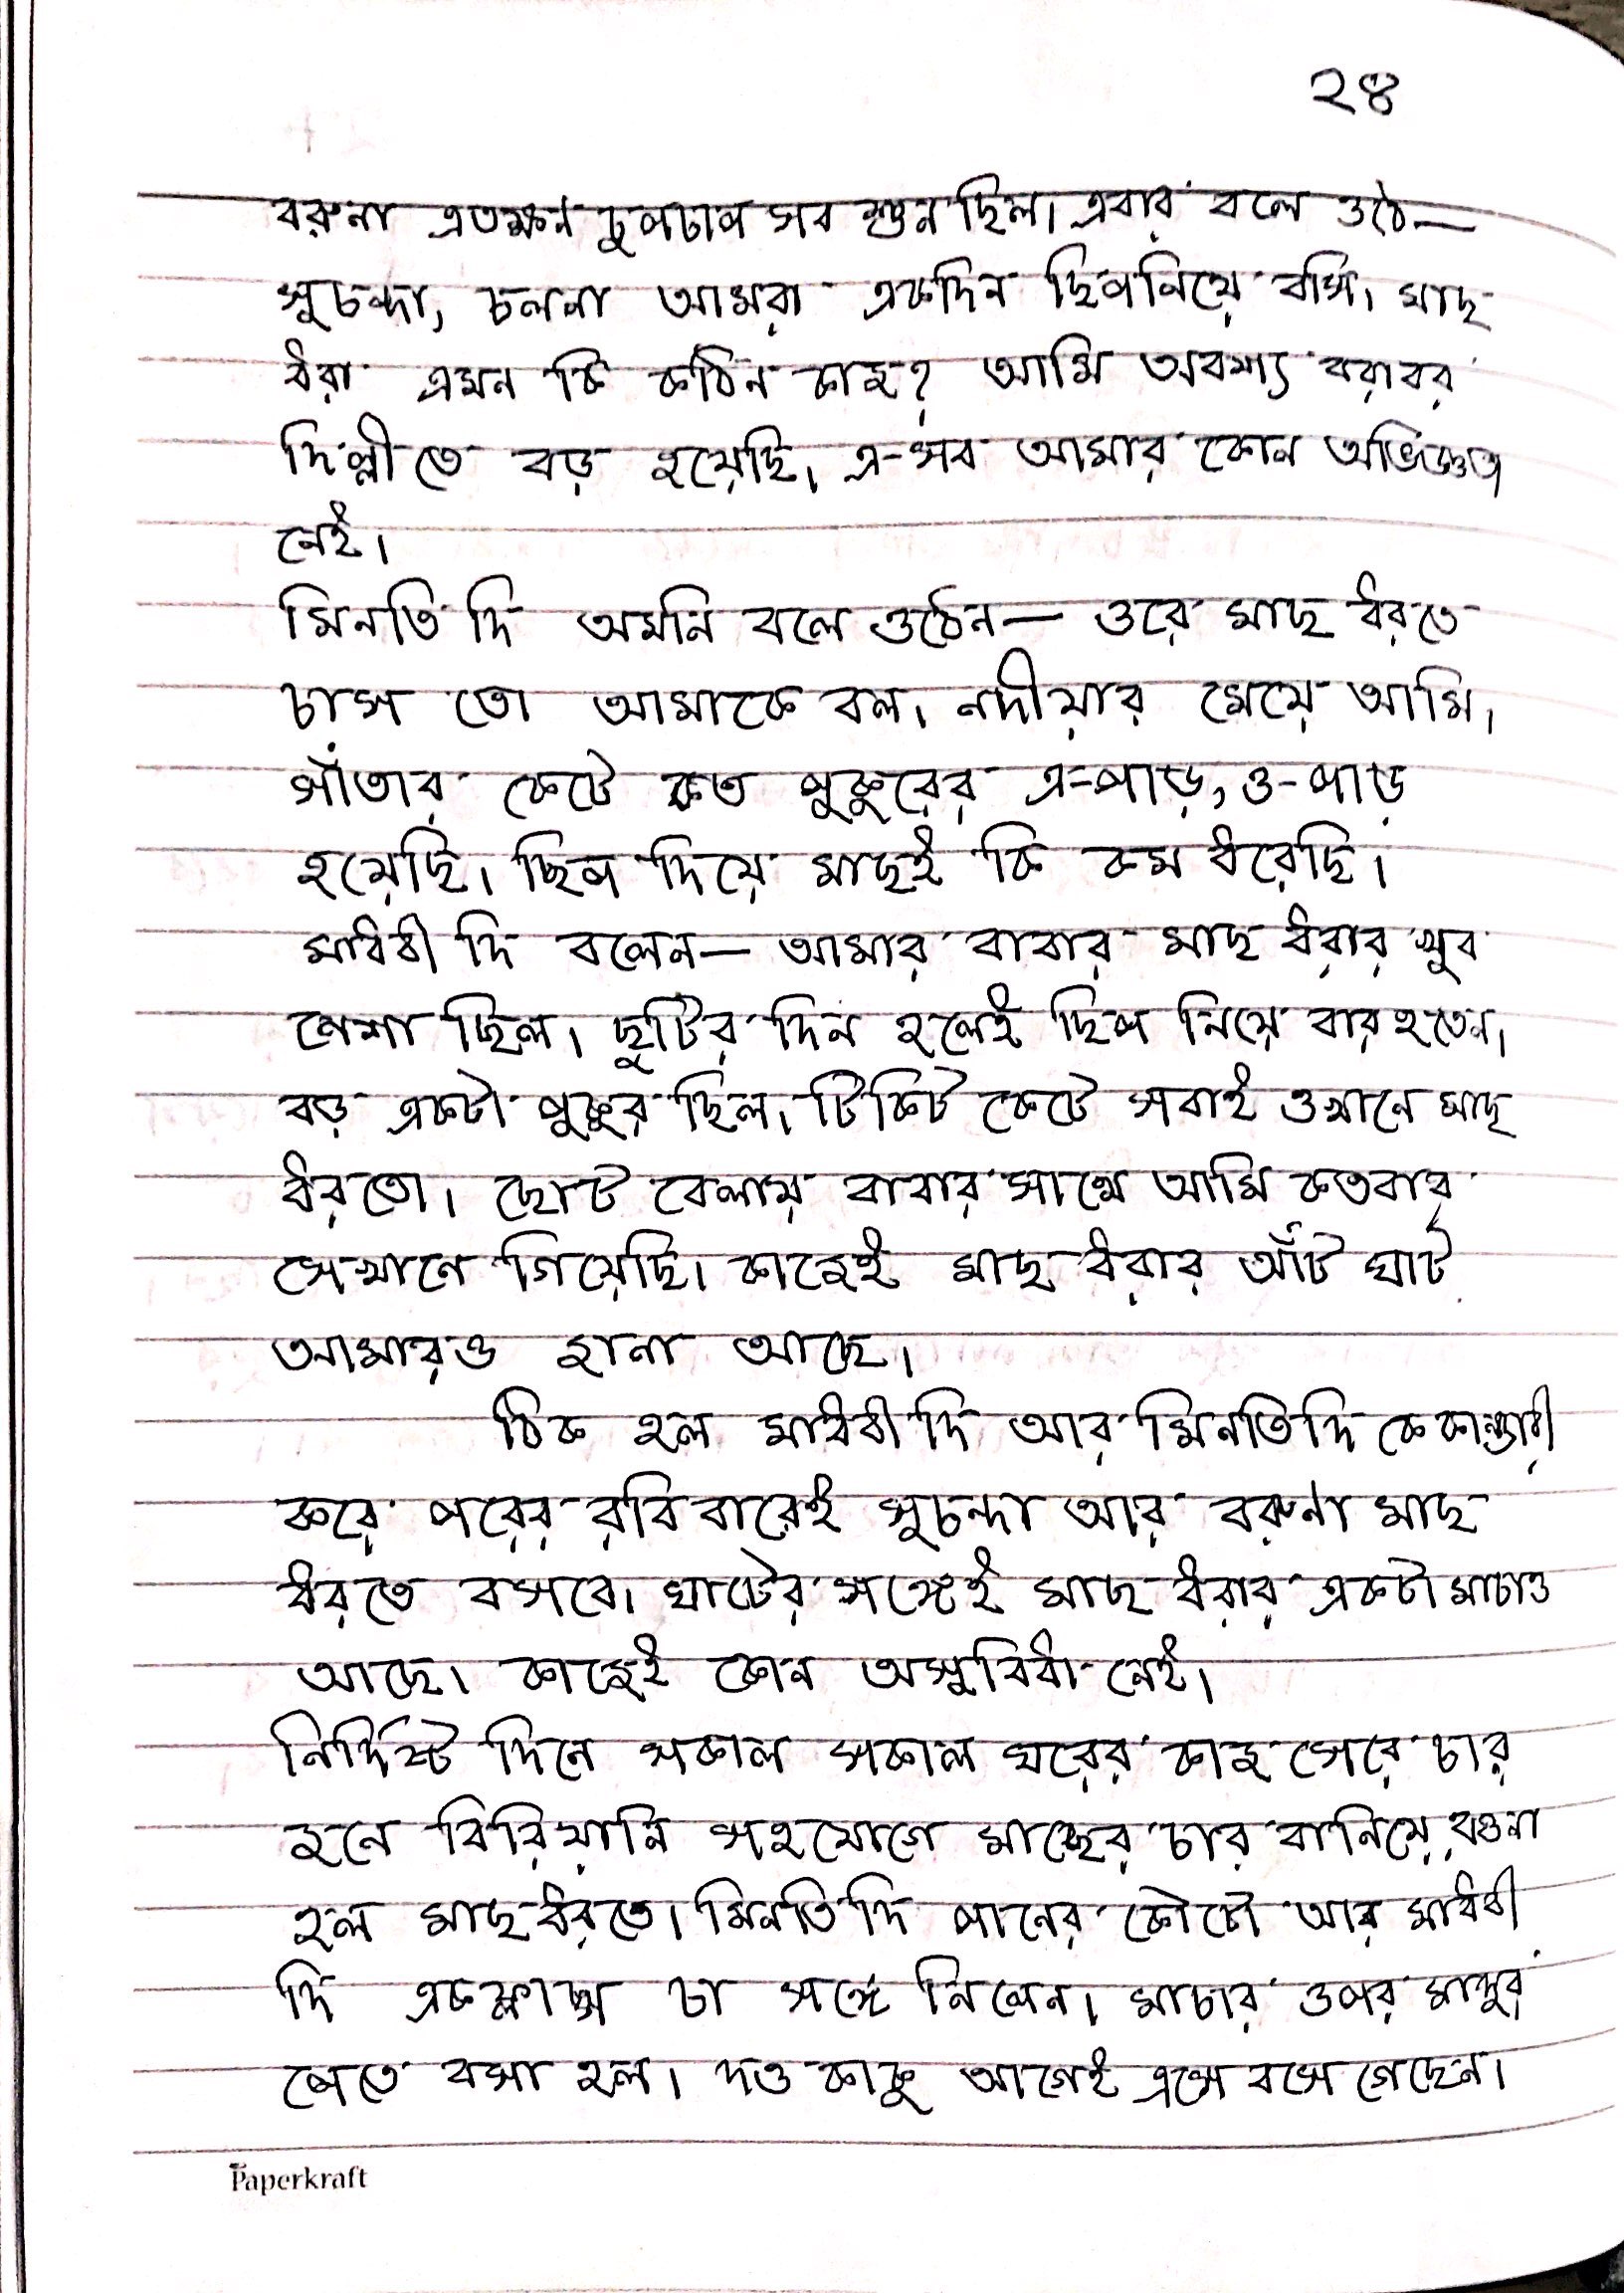 ২৪
বরুনা এতক্ষন চুপচাপ সব শুনছিল। এবার বলে ওঠে—
সুচন্দা, চলনা আমরা একদিন ছিপ নিয়ে বসি। মাছ
ধরা এমন কি কঠিন কাজ? আমি অবশ্য বরাবর
দিল্লীতে বড় হয়েছি। এ-সব আমার কোন অভিজ্ঞতা
নেই।
মিনতি দি অমনি বলে ওঠেন— ওরে মাছ ধরতে
চাস তো আমাকে বল। নদীয়ার মেয়ে আমি।
সাঁতার কেটে কত পুকুরের এ-পাড়, ও-পাড়
হয়েছি। ছিপ দিয়ে মাছই কি কম ধরেছি।
মাধবী দি বলেন— আমার বাবার মাছ ধরার খুব
নেশা ছিল। ছুটির দিন হলেই ছিপ নিয়ে বার হতেন।
বড় একটা পুকুর ছিল। টিকিট কেটে সবাই ওখানে মাছ
ধরতো। ছোট বেলায় বাবার সাথে আমি কতবার
সেখানে গিয়েছি। কাজেই মাছ ধরার আঁট ঘাট
আমারও জানা আছে।
ঠিক হল মাধবী দি আর মিনতি দি কে কান্ডারী
করে পরের রবিবারেই সুচন্দা আর বরুনা মাছ
ধরতে বসবে। ঘাটের সঙ্গেই মাছ ধরার একটা মাচাও
আছে। কাজেই কোন অসুবিধা নেই।
নির্দিষ্ট দিনে সকাল সকাল ঘরের কাজ সেরে চার
জনে বিরিয়ানি সহযোগে মাছের চার বানিয়ে রওনা
হল মাছ ধরতে। মিনতি দি পানের কৌটো আর মাধবী
দি একফ্লাস্ক চা সঙ্গে নিলেন। মাচার ওপর মাদুর
পেতে বসা হল। দত্ত কাকু আগেই এসে বসে গেছেন।
Paperkraft